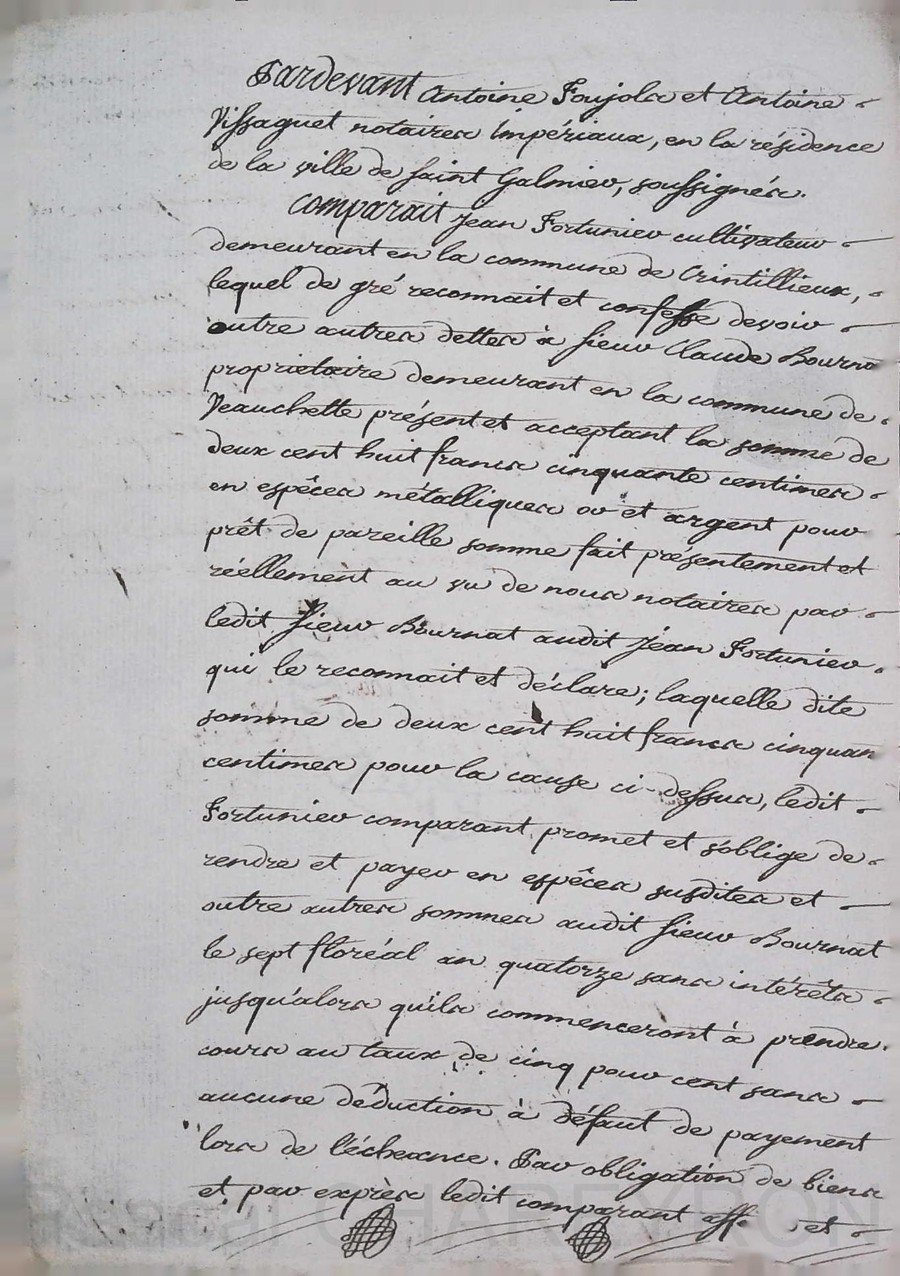 Pardevant Antoine Foujols et Antoine
Vissaguet notaires impériaux, en la résidence
de la ville de saint Galmier, soussignés.
Comparait Jean Fortunier cultivateur
demeurant en la commune de Crintillieux,
lequel de gré reconnait et confesse devoir
outre autres dettes à sieur Claude Bourna
proprietaire demeurant en la commune de
Veauchette présent et acceptant la somme de
deux cent huit francs cinquante centimes
en espêces métalliques or et argent pour
prêt de pareille somme fait présentement et
réellement au vu de nous notaires par
ledit sieur Bournat audit Jean Fortunier
qui le reconnait et déclare; laquelle dite
somme de deux cent huit francs cinquan
centimes pour la cause ci-dessus, ledit
Fortunier comparant promet et s'oblige de
rendre et payer en espêces susdites et
outre autres sommes audit sieur Bournat
le sept floréal an quatorze sans intérêts
jusqu'alors qu'ils commenceront à prendre
cours au taux de cinq pour cent sans
aucune déduction à défaut de payement
lors de l'écheance. Par obligation de biens
et par exprès ledit comparant aff. et
CHAREYRON